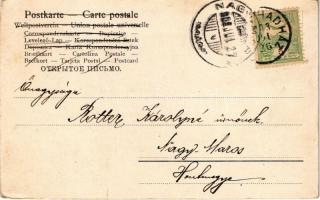 Postkarte — Carte postale
Weltpostverein — Union postale universelle
Correspondenzkarte — Dopisnice
Levelező-Lap — Korespondenční lístek
Dopisnica — Karta Korespondencyjna
Brefkort — Cartolina Postale
Brevkort — Tarjeta Postal — Postcard
ОТКРЫТОЕ ПИСЬМО.
NAGY
Őnagysága
Rotter Károlyné úrnőnek
Nagy Maros
Hontmegye